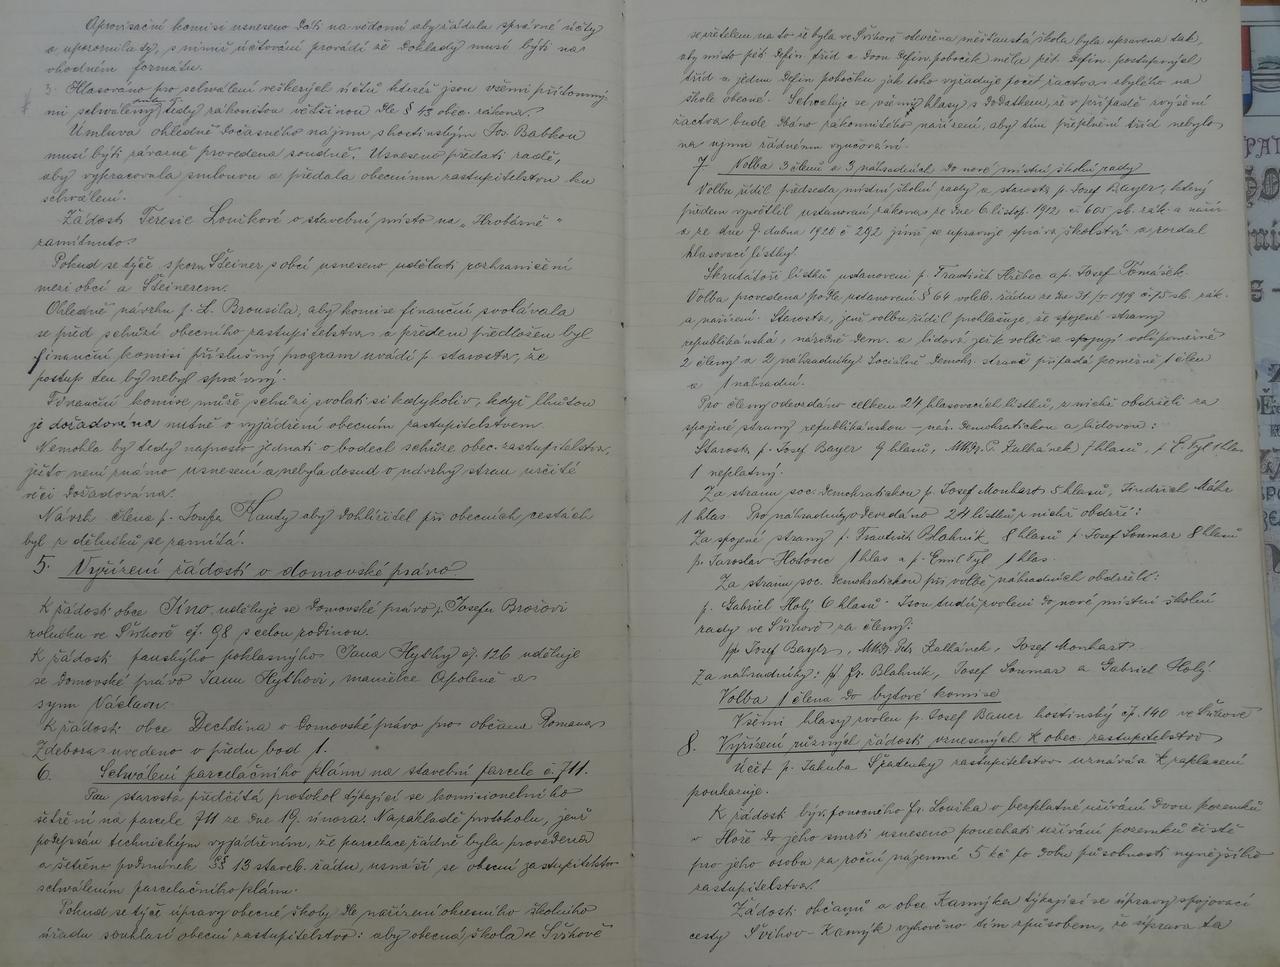 Aprovisační komisi usneseno dáti na vědomí aby žádala správné účty
a upozornila ty, s nimiž účtování provádí že doklady musí býti na
vhodném formátu.
3. Hlasováno pro schválení veškerých účtů kteréž jsou všemi přítomný-
mi schváleny, tedy zákonitou většinou dle § 43 obec. zákona.
Úmluva ohledně dočasného nájmu s hostinským Jos. Babkou
musí býti závazně provedena soudně. Usneseno předati radě,
aby vypracovala smlouvu a předala obecnímu zastupitelstvu ku
schválení.
Žádost Terezie Louikové o stavební místo na „Hrobárně"
zamítnuto.
Pokud se týče sporu Šteiner s obcí usneseno udělati rozhraničení
mezi obcí a Šteinerem.
Ohledně návrhu p. L. Brousila, aby komise finanční svolávala
se před schůzí obecního zastupitelstva a předem předložen byl
finanční komisi příslušný program uvádí p. starosta, že
postup ten by nebyl správný.
Finanční komise může schůzi svolati si kdykoliv, když lhůtou
je dožádována nutně o vyjádření obecním zastupitelstvem
Nemohla by tedy naprosto jednati o bodech schůze obec. zastupitelstva,
ježto není známo usnesení a nebyla dosud o návrhy stran určité
věci dožádována.
Návrh člena p. Josefa Handy aby dohlížitel při obecních cestách
byl z dělníků se zamítá.
5. Vyřízení žádostí o domovské právo
K žádosti obce Jíno uděluje se domovské právo p. Josefu Brožovi
rolníku ve Švihově čp. 98 s celou rodinou.
K žádosti panského poklasného Jana Hythy čp. 126 uděluje
se domovské právo Janu Hythovi, manželce Apoleně a
synu Václavu.
K žádosti obce Dechtina o domovské právo pro občana Romana
Zdebora uvedeno v předu bod 1.
6. Schválení parcelačního plánu na stavební parcele č. 711.
Pan starosta předčítá protokol týkající se komisionelního
šetření na parcele 711 ze dne 19. února. Na základě protokolu, jenž
podepsán technickým vyjádřením, že parcelace řádně byla provedena
a šetřeno podmínek §§ 13 staveb. řádu, usnáší se obecní zastupitelstvo
schválením parcelačního plánu.
Pokud se týče úpravy obecné školy dle nařízení okresního školního
úřadu souhlasí obecní zastupitelstvo: aby obecná škola ve Švihově
se zřetelem na to že byla ve Švihově otevřena měšťanská škola byla upravena tak,
aby místo pěti defin. tříd a dvou defin. poboček měla pět defin. postupných
tříd a jednu defin. pobočku jak toho vyžaduje počet žactva zbylého na
škole obecné. Schvaluje se všemi hlasy s dodatkem, že v případě zvýšení
žactva bude dbáno zákonitého nařízení, aby tím přeplnění tříd nebylo
na újmu řádnému vyučování.
7. Volba 3 členů a 3 náhradních do nové místní školní rady
Volbu řídil předseda místní školní rady a starosta p. Josef Bayer, který
předem vysvětlil ustanovení zákona ze dne 6. listop. 1912 č. 605 sb. zák. a naříz.
a ze dne 9. dubna 1920 č 292 jimž se upravuje správa školství a rozdal
hlasovací lístky.
Skrutátoři lístků ustanoveni p. František Hříbec a p. Josef Tomášek.
Volba provedena podle ustanovení § 64 voleb. řádu ze dne 31/1. 1919 č. 75 sb. zák.
a nařízení. Starosta, jenž volbu řídil prohlašuje, že spojené strany
republikánská, národně dem. a lidová jež k volbě se spojují volí poměrně
2 členy a 2 náhradníky. Sociálně demokr. straně připadá poměrně 1 člen
a 1 náhradní.
Pro členy odevzdáno celkem 24 hlasovacích lístků, z nichž obdrželi za
spojené strany republikánskou – nár. demokratickou a lidovou:
Starosta p. Josef Bayer 9 hlasů, MUDr. P. Kalbáнek 7 hlasů, p. E. Tyl 1 hlas
1 neplatný.
Za stranu soc. demokratickou p. Josef Monhart 5 hlasů, Jindřich Mähr
1 hlas. Pro náhradníky odevzdáno 24 lístků z nichž obdrží:
Za spojené strany p. František Blahník 8 hlasů p. Josef Soumar 8 hlasů
p. Jaroslav Hodonec 1 hlas a p. Emil Tyl 1 hlas.
Za stranu soc. demokratickou při volbě náhradních obdrželi:
p. Gabriel Holý 6 hlasů. Jsou tudíž zvoleni do nové místní školní
rady ve Švihově za členy:
pp. Josef Bayer, MUDr. Petr Kalbánek, Josef Monhart
Za náhradníky: p. Fr. Blahník, Josef Soumar a Gabriel Holý.
Volba 1 člena do bytové komise
Všemi hlasy zvolen p. Josef Bauer hostinský čp. 140 ve Švihově
8. Vyřízení různých žádostí vznesených k obec. zastupitelstvu
Účet p. Jakuba Špatenky zastupitelstvo uznává a k zaplacení
poukazuje.
K žádosti býv. ponocného Fr. Louika o bezplatné užívání dvou pozemků
v Hoře do jeho smrti usneseno ponechati užívání pozemků čistě
pro jeho osobu za roční nájemné 5 kč po dobu působnosti nynějšího
zastupitelstva.
Žádosti občanů a obce Kamýka týkající se úpravy spojovací
cesty Švihov–Kamýk vyhověno tím způsobem, že úprava ta